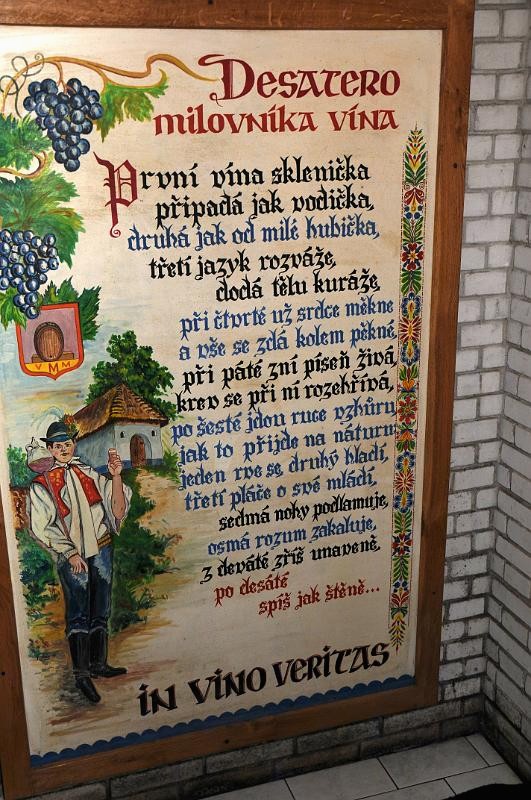 Desatero
milovníka vína
První vína sklenička
připadá jak vodička,
druhá jak od milé hubička,
třetí jazyk rozváže,
dodá tělu kuráže,
při čtvrté už srdce měkne
a vše se zdá kolem pěkné,
při páté zní píseň živá,
krev se při ní rozehřívá,
po šesté jdou ruce vzhůru,
jak to přijde na náturu
jeden rve se, druhý hladí,
třetí pláče o své mládí,
sedmá nohy podlamuje,
osmá rozum zakaluje,
z deváté zříš unaveně,
po desáté
spíš jak štěně...
in vino veritas
VMM